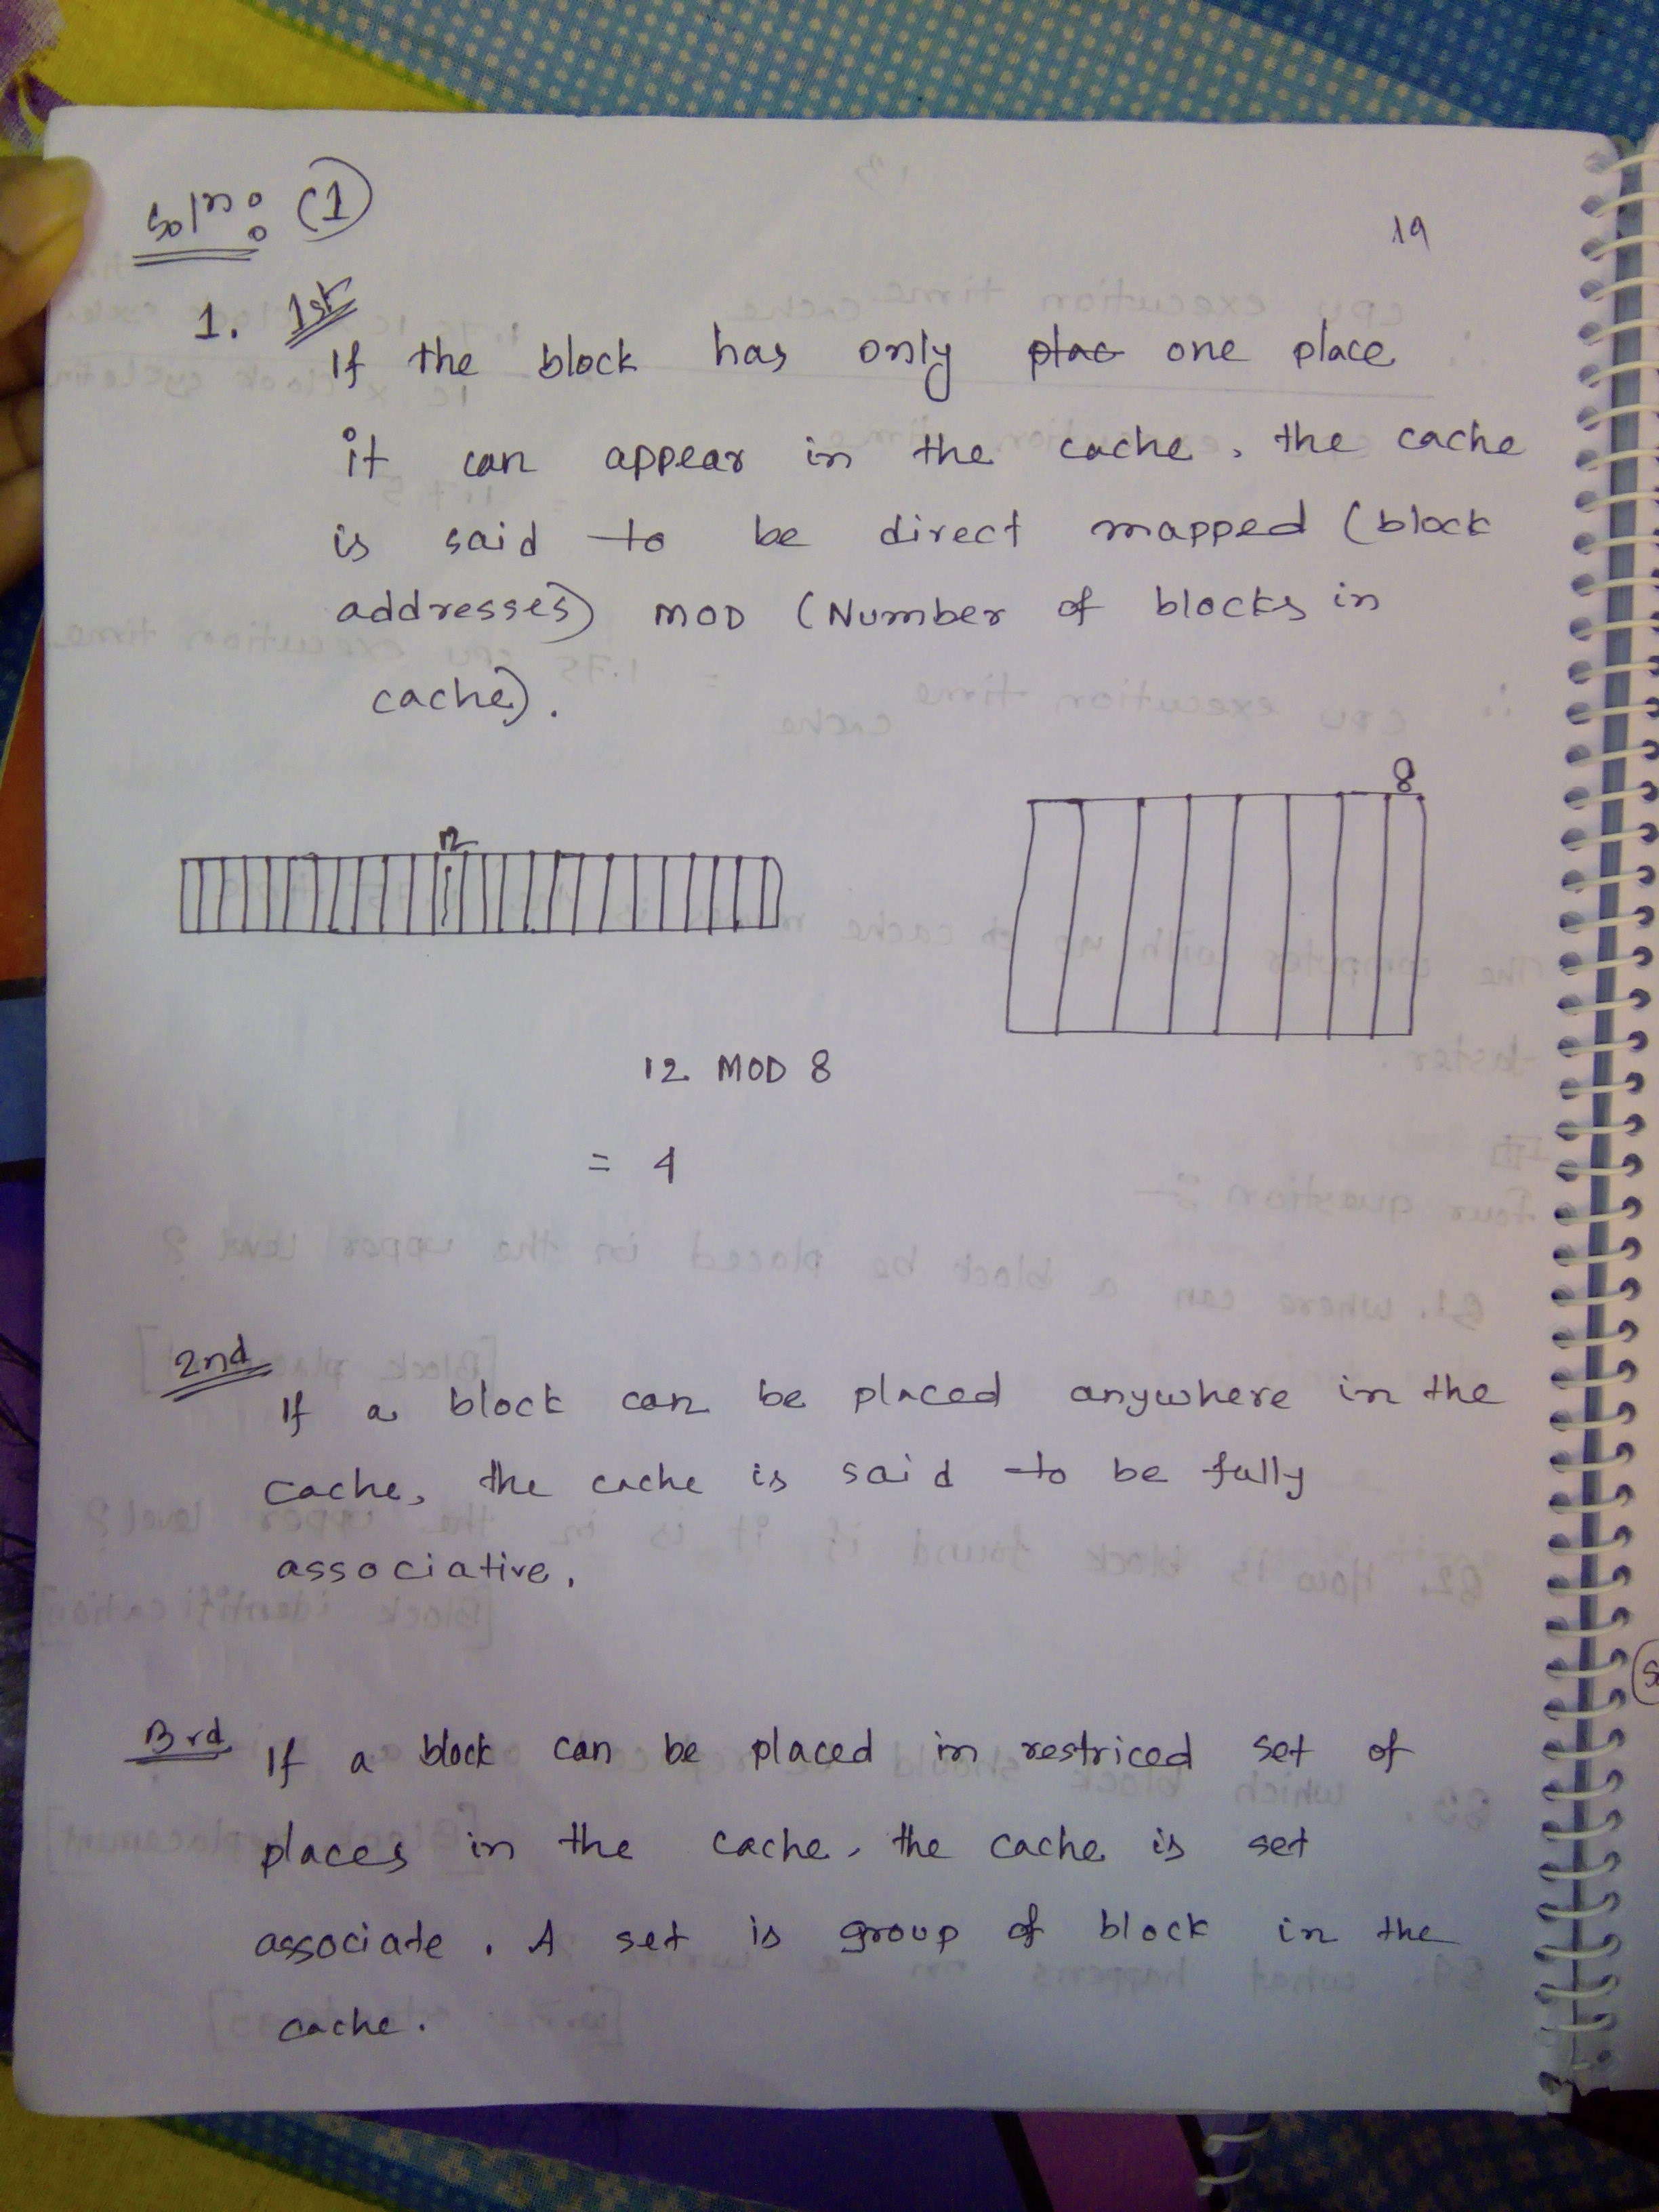 Soln: (1)
19
1. 1st
If the block has only plac one place
it can appear in the cache, the cache
is said to be direct mapped (block
addresses) MOD (Number of blocks in
cache).
8
12
12 MOD 8
= 4
2nd
If a block can be placed anywhere in the
cache, the cache is said to be fully
associative.
3rd If a block can be placed in restriced set of
places in the cache, the cache is set
associate. A set is group of block in the
cache.